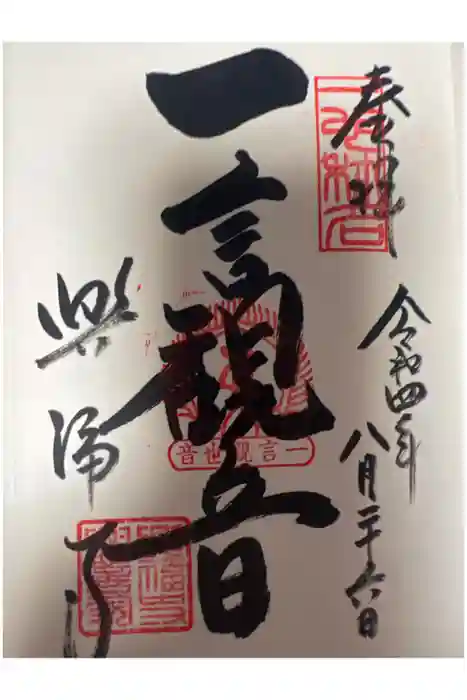 奉拝
令和四年
八月二十六日
一言観音
一言観世音
興福寺